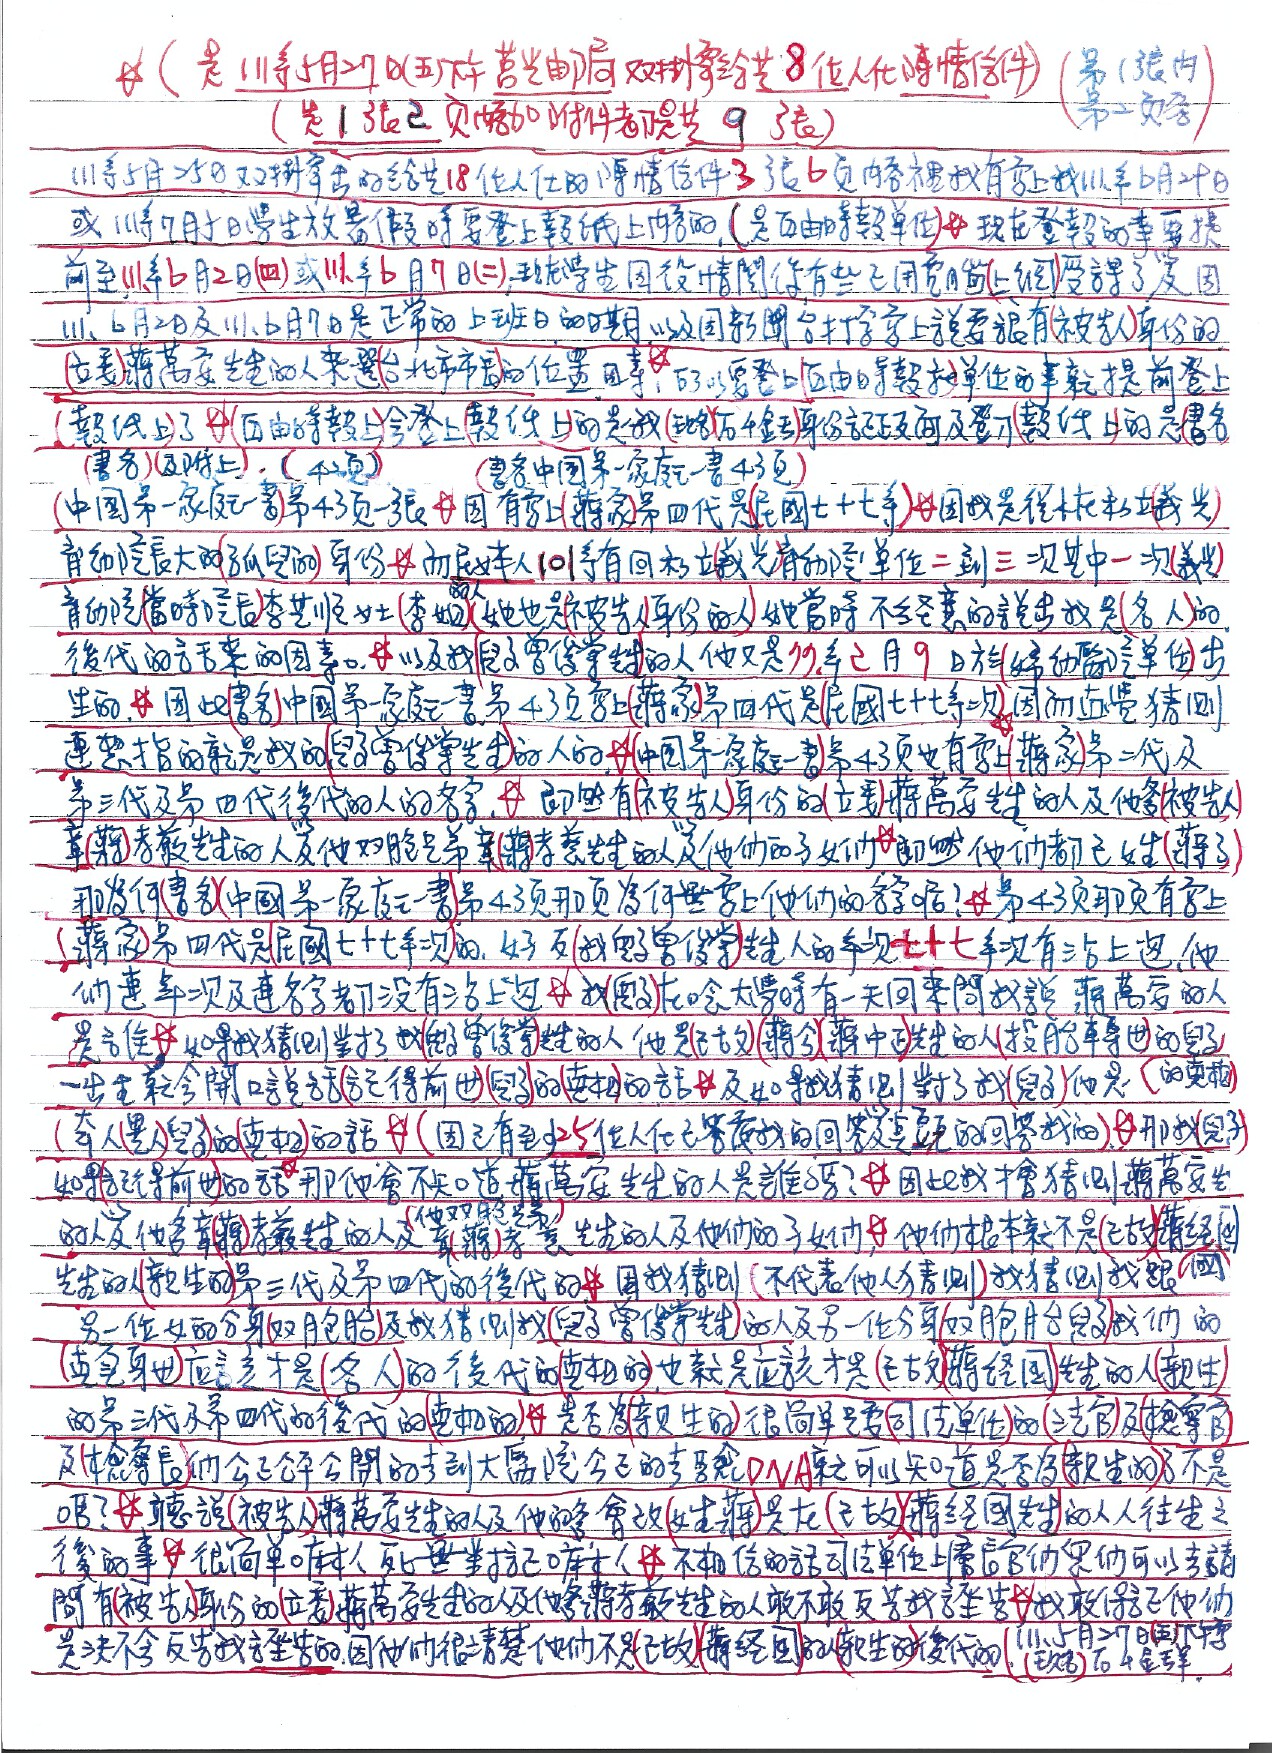 ☆(是111年5月27日(五)下午莒光郵局双掛寄給共8位人仕陳情信件)(第1張內
第二頁書)
(是1張2頁內容加附件都是共9張)
111年5月25日双掛寄出的給共18位人仕的陳情信件3張6頁內容裡我有寫上我111年6月29日
或111年7月5日學生放暑假時要登上報紙上內容的,(是自由時報單位)☆現在登報的事要提
前至111年6月2日(四)或111年6月7日(二),現在學生因疫情關係有些已用電腦(上網)受課了及因
111、6月2日及111、6月7日是正常的上班日的日期,以及因新聞台打字寫上說要跟有(被告人)身份的
(立委)蔣萬安先生的人來選(台北市市長)的位置因素,☆所以要登上(自由時報社)單位的事就提前登上
(報紙上)了☆(自由時報)上會登上(報紙上)的是我 身份証正反面及登才(報紙上)的是(書名
(書名)(及附上)。(42頁) (書名中国第一家庭一書43頁)
(中国第一家庭一書)第43頁一張☆因有寫上(蔣家)第四代是(民國七十七年)☆因我是從 私立(義光)
育幼院長大的(孤兒的)身份☆而 本人101年有回私立義光育幼院單位二到三次其中一次(義光
育幼院)當時院長李 女士(李姐)的人(她也是(被告人)身份的人)她當時不經意的說出我是(名人)的
後代的言語來的因素。☆以及我(兒子曾俊 先生)的人他又是77年2月9日於(婦幼醫院單位)出
生的,☆因此(書名)中國第一家庭一書第43頁寫上(蔣家)第四代是(民國七十七年次)☆因而直覺猜測
連想指的就是我的(兒子曾俊 先生)的人的,☆(中国第一家庭一書)第43頁也有寫上(蔣家)第二代及
第三代及第四代後代的人的名字,☆即然有(被告人)身份的(立委)蔣萬安先生的人及他爸(被告人)
章(蔣)孝嚴先生的人及他双胞兄弟章(蔣)孝慈先生的人及他們的子女們☆即然他們都已姓(蔣了)
那為何(書名)(中國第一家庭一書)第43頁那頁為何無寫上他們的名字呢?☆第43頁那頁有寫上
(蔣家)第四代是(民國七十七年次)的,好反(我兒子曾俊 )先生人的年次七十七年次有沾上邊,他
們連年次及連名字都沒有沾上邊☆我(兒子)在唸大學時有一天回來問我說 蔣萬安的人
是誰☆如果我猜測對了我(兒子曾俊 先生)的人 他是(已故)(蔣公)(蔣中正)先生的人(投胎轉世)的兒子
一出生就会開口說話(記得前世)(兒子)的(真相)的話☆及如果我猜測對了我(兒子)他是(的真相)
(奇人(異人)兒子)的(真相)的話☆(因已有到25位人仕已答覆我的回答及 的回答我的)☆那我(兒子)
如果記得前世的話☆那他會不知道蔣萬安先生的人是誰嗎?☆因此我才會猜測蔣萬安先生
的人及他爸章(蔣)孝嚴先生的人及(他双胞兄弟)章(蔣)孝慈 先生的人及他們的子女們☆他們根本就不是(已故)(蔣經國)
先生的人(親生的)第三代及第四代的後代的☆因我猜測(不代表他人猜測)我猜測我跟
另一位女的分身(双胞胎)及我猜測我(兒子曾俊 先生)的人及另一位分身(双胞胎台兒子)我們的
(真身世)應該才是(名人)的後代的(真相的)也就是應該才是(已故)(蔣經国)先生的人(親生)
的第三代及第四代的後代的(真相的)☆是否為親生的很簡單只要司法單位的(法官)及(檢察官)
及(檢察長)們公正公平公開的去到大醫院公正的去驗DNA就可以知道是否為(親生的)了不是
嗎?☆聽說(被告人)蔣萬安先生的人及他的爸會改(姓蔣)是在(已故)(蔣經國先生)的人人往生之
後的事☆很簡單嘛!死無對証嘛!☆不相信的話司法單位上層長官們眾們可以去請
問有(被告人)身份的(立委)蔣萬安先生的人及他爸蔣孝嚴先生的人敢不敢反告我誣告☆我敢保証他們
是決不会反告我誣告的,因他們很清楚他們不是(已故)(蔣經国)的人(親生的)後代的(111、5月27日(五)下午